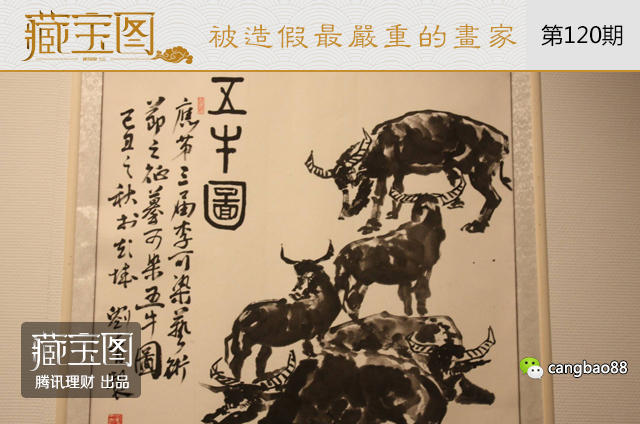 藏宝图
被造假最嚴重的畫家
第120期
五牛圖
應第三届李可染藝術
節之征摹可染五牛圖
己丑之秋於彭城 劉
藏宝图
腾讯理财 出品
cangbao88